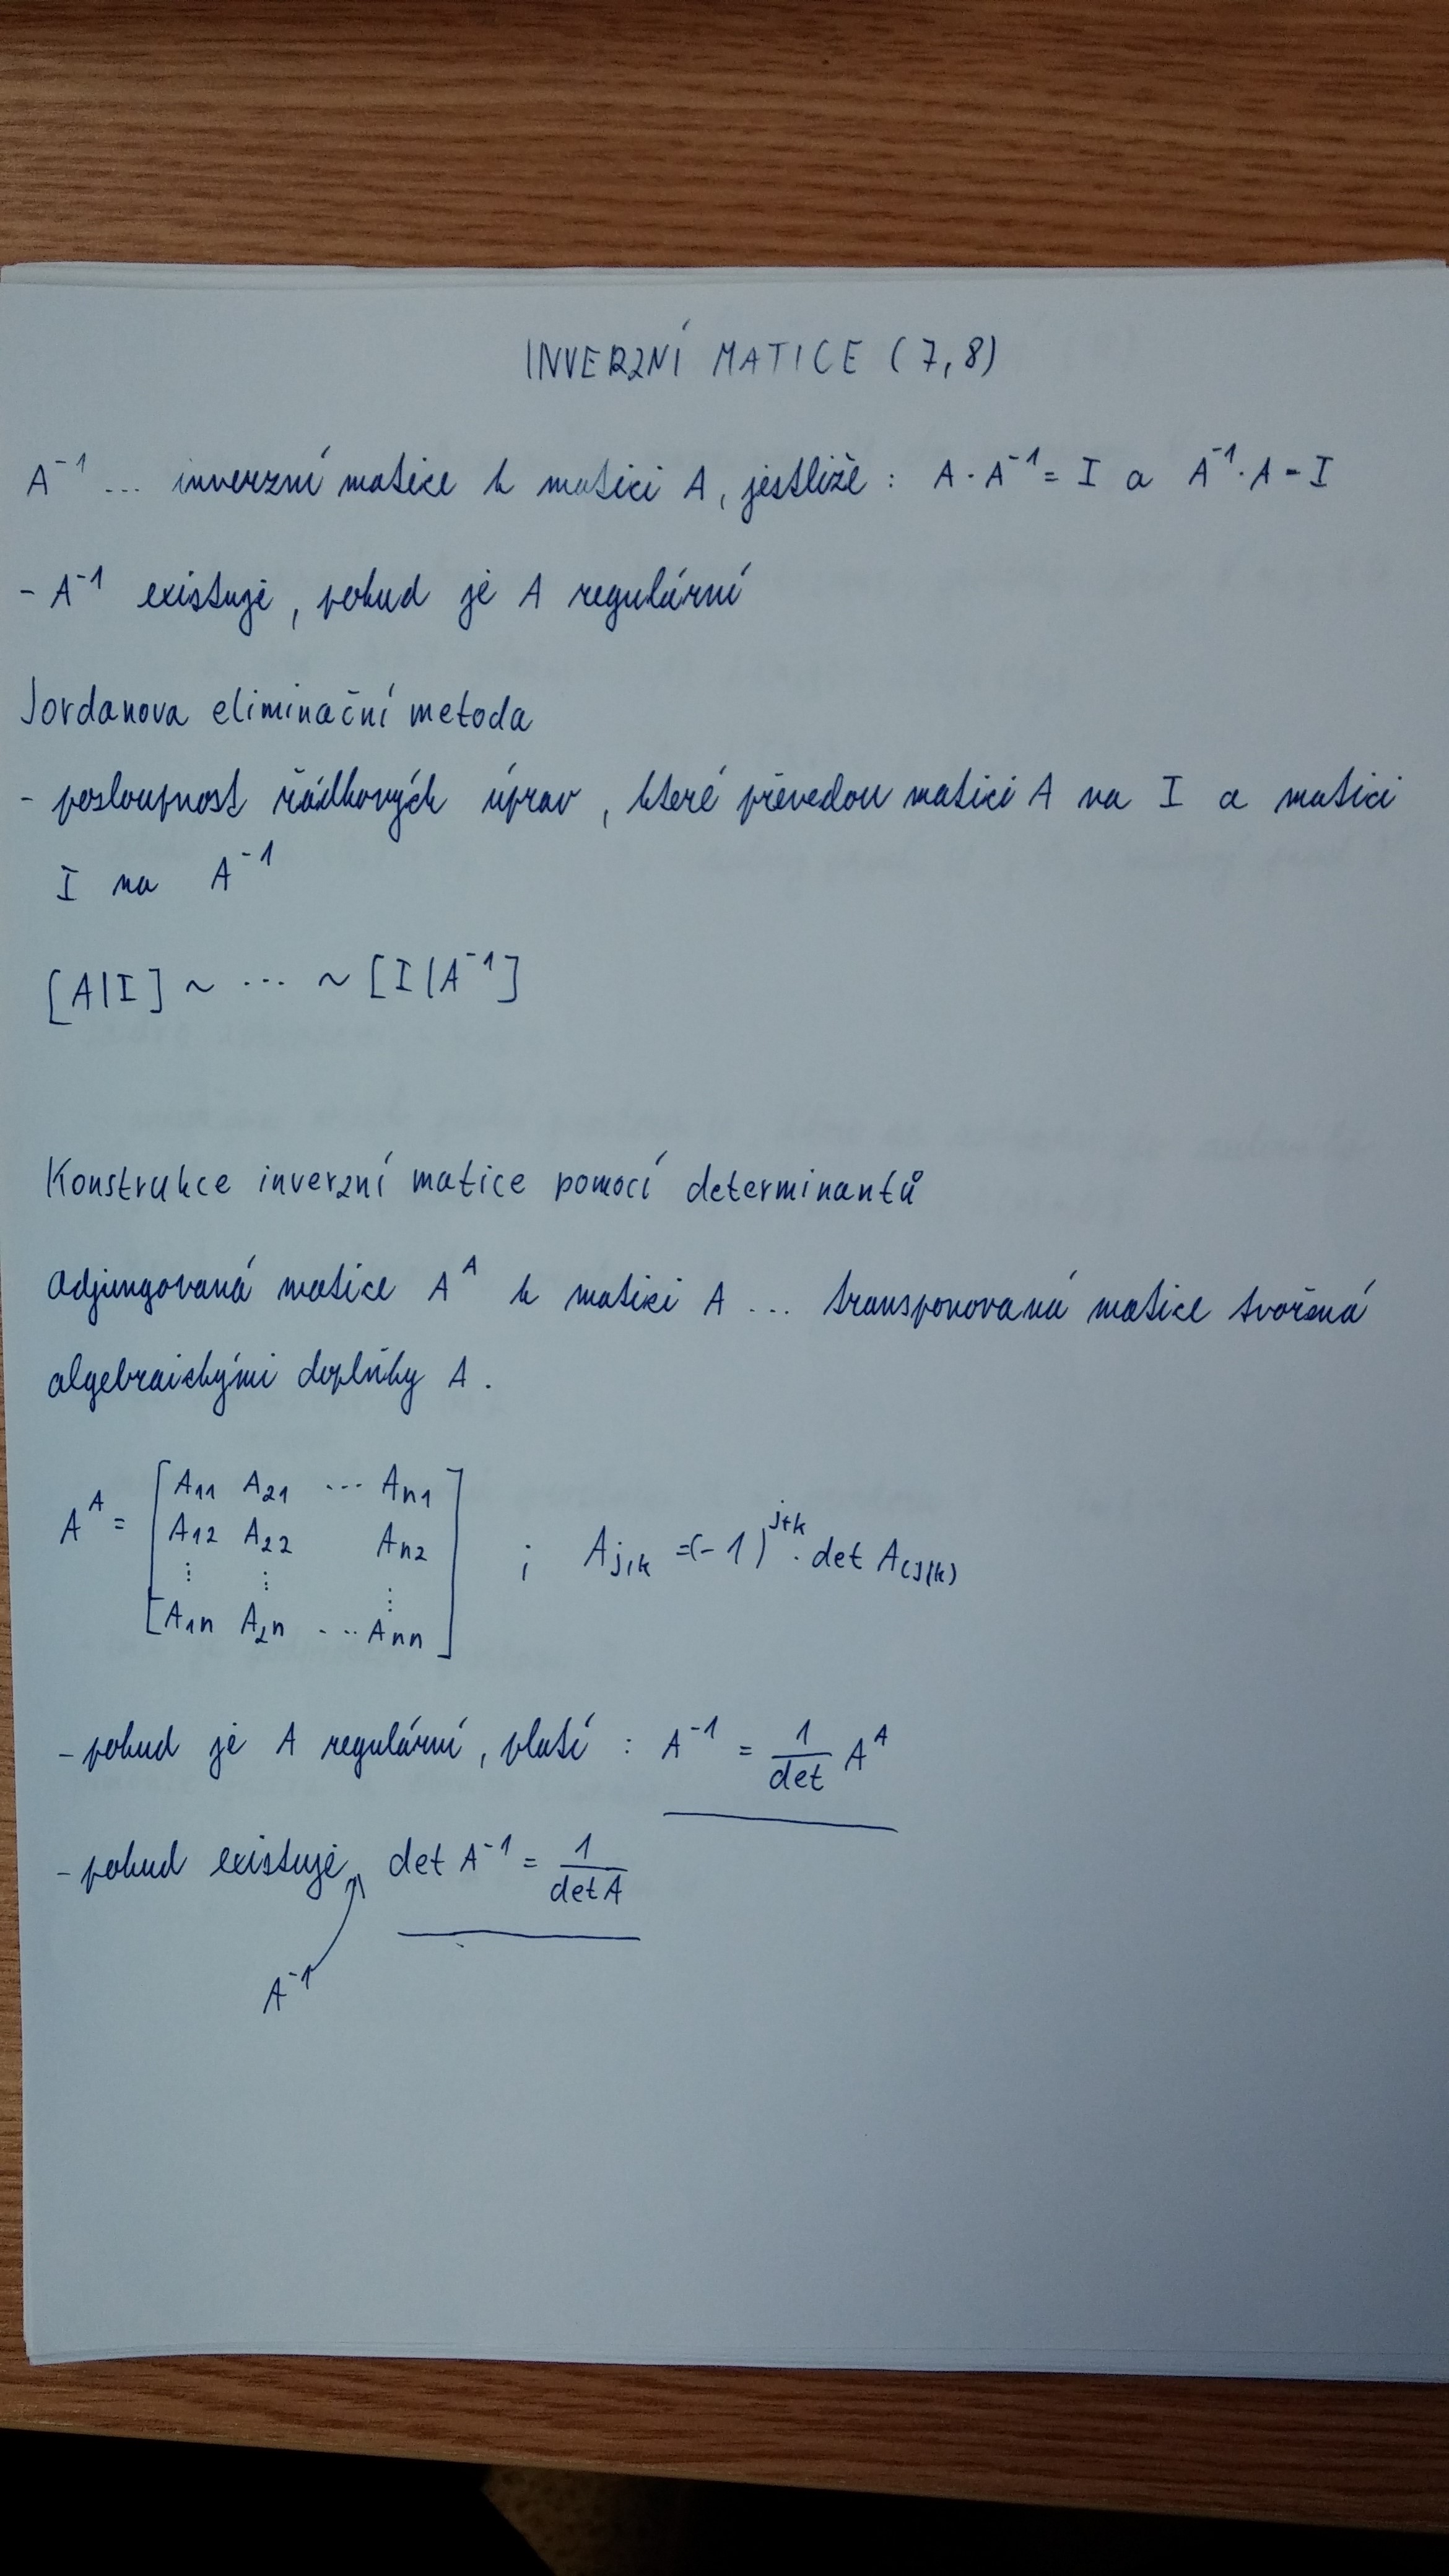 INVERZNÍ MATICE (7,8)
A⁻¹ ... inverzní matice k matici A, jestliže : A · A⁻¹ = I a A⁻¹ · A = I
- A⁻¹ existuje, pokud je A regulární
Jordanova eliminační metoda
- posloupnost řádkových úprav, které převedou matici A na I a matici
I na A⁻¹
[A|I] ~ ... ~ [I|A⁻¹]
Konstrukce inverzní matice pomocí determinantů
Adjungovaná matice Aᴬ k matici A ... transponovaná matice tvořená
algebraickými doplňky A.
Aᴬ = [A₁₁ A₂₁ ... Aₙ₁
A₁₂ A₂₂ Aₙ₂
⋮ ⋮ ⋮
A₁ₙ A₂ₙ ... Aₙₙ] ; Aj,k = (-1)^j+k · det A(j|k)
- pokud je A regulární, platí : A⁻¹ = 1/det Aᴬ
- pokud existuje, det A⁻¹ = 1/det A
A⁻¹